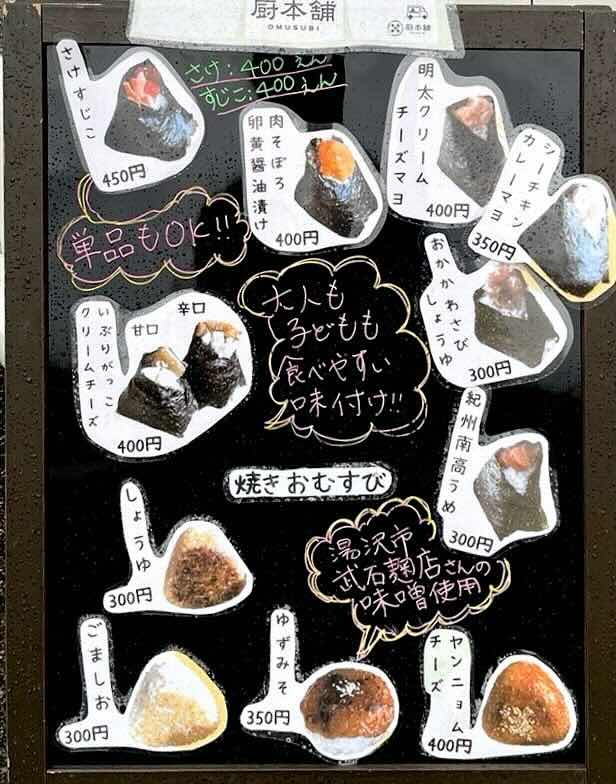 厨本舗
OMUSUBI
厨本舗
さけ:400えん
すじこ:400えん
さけすじこ
450円
肉そぼろ
卵黄醤油漬け
400円
明太クリーム
チーズマヨ
400円
シーチキン
カレーマヨ
350円
単品もOK!!
大人も
子どもも
食べやすい
味付け!!
おかかわさび
しょうゆ
300円
いぶりがっこ
クリームチーズ
甘口
辛口
400円
紀州南高うめ
300円
焼きおむすび
しょうゆ
300円
湯沢市
武石麹店さんの
味噌使用
ごましお
300円
ゆずみそ
350円
ヤンニョム
チーズ
400円